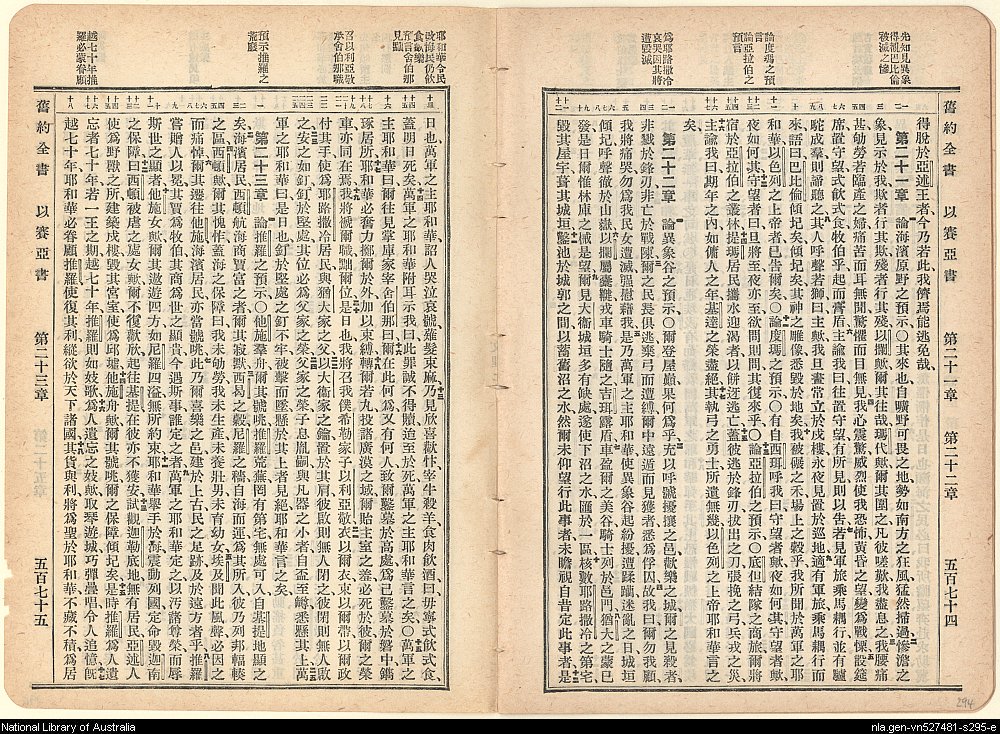 先知見異象
得視巴比倫
被滅之慘
論度瑪之預
言
論亞拉伯之
預言
為耶路撒冷
哀哭因其將
遭毀滅
舊約全書 以賽亞書 第二十一章 第二十二章 五百七十四
得脫於亞述王者今乃若此我儕焉能逃免哉
第二十一章 論海濱原野之預示○其來也自曠野可畏之地勢如南方之狂風猛然掃過慘澹之
象見示於我欺者行其欺殘者行其殘以攔歟爾其往哉瑪代歟爾其圍之凡彼嗟歎我盡息之我腰痛
甚劬勞若臨產之婦痛苦而耳無聞驚懼而目無見我心震驚威烈使我恐怖黃昏之望變為戰慄設筵
席置守望式飲式食牧伯乎起而膏盾主諭我曰往置守望有所見則以告若見軍旅乘馬耦行並有驢
駝成羣則諦聽之其人呼聲若獅曰主歟我旦晝常立於戍樓永夜見置於巡地適有軍旅乘馬耦行而
來語曰巴比倫傾圮矣傾圮矣其神之雕像悉毀於地矣我被碾之禾場上之穀乎我所聞於萬軍之耶
和華以色列之上帝者已告爾矣○論度瑪之預示○有自西珥呼我曰守望者歟夜如何其守望者歟
夜如何其守望者曰旦將至夜亦至欲問則問其復來乎○論亞拉伯之預示○底但結隊之商旅爾將
宿於亞拉伯之叢林提瑪居民攜水迎渴者以餅迓逃亡蓋彼逃於鋒刃拔出之刀張挽之弓兵戎之災
主諭我曰期年之內如傭人之年基達之榮盡絕其執弓之勇士所遺無幾以色列之上帝耶和華言之
矣
第二十二章 論異象谷之預示○爾登屋巔果何為乎充以呼號擾攘之邑歡樂之城爾之見殺者
非戕於鋒刃非亡於戰陳爾之民長俱逃棄弓而遭縛爾中遠遁而見獲者悉為俘囚故我曰爾勿我顧
我將痛哭勿為我民女遭滅強慰藉我是乃萬軍之主耶和華使異象谷起紛擾遭蹂躪迷亂之日城垣
傾圮呼聲徹於山嶽以攔屬橐韃我車騎士隨之吉珥露盾車盈爾之美谷騎士列於邑門猶大之蒙已
發是日爾仰林庫之戎械是望爾見大衞城多有缺處遂使下沼之水匯於一區核數耶路撒冷之第宅
毀其屋宇葺其城垣鑿池於城郭之間以蓄舊沼之水然爾未仰望行此事者未瞻視自昔定此事者是
耶和華令民
改悔民仍飲
食歡樂
預言舍伯那
見黜
召以利亞敬
承舍伯那職
預示推羅之
荒廢
越七十年推
羅必蒙眷顧
日也萬軍之主耶和華詔人哭泣哀號薙髮束麻乃見欣喜歡忭宰牛殺羊食肉飲酒曰毋寧式飲式食
蓋明日死矣萬軍之主耶和華附耳示我曰此罪誠不得贖迨至於死萬軍之主耶和華言之矣○萬軍之
主耶和華曰爾往見掌庫家宰舍伯那曰爾在此何為又有何人致爾鑿墓於此歟為己鑿墓於磐中鐫
琢居所耶和華必奮力擲爾於外加以束縛轉爾若丸投諸廣漠之域爾貽主室之羞必死於彼爾之榮
車亦同在焉我將褫爾職黜爾位是日也我將召我僕希勒家子以利亞敬衣以爾衣束以爾帶以爾政
付其手使為耶路撒冷居民與猶大家之父以大衞家之鑰置於其肩彼啟則無人閉之彼閉則無人啟
之安之如釘釘於堅處其位必為父家之榮父家之榮子息胤嗣與凡器之小者自盃至罇悉懸其上萬
軍之耶和華曰是日也釘於堅處之釘不牢被擊而墜懸於其上者見絕耶和華言之矣
第二十三章 論推羅之預示○他施羣舟爾其號咷推羅荒蕪罔有第宅無處可入自基提地顯之
矣海濱居民西頓航海商賈富之者爾其寂默西曷之穀尼羅之穡自海而運為其所入彼乃列邦輻輳
之區西頓歟爾其愧怍蓋海之保障曰我未劬勞我未生產未養壯男未育幼女埃及聞此風聲必因之
而痛悼爾其遷往他施海濱居民亦當號咷此乃爾喜樂之邑建於上古民之足跡及於遠方者乎推羅
嘗賜人以冕其賈為牧伯其商為世之顯貴今遇斯事誰定之者萬軍之耶和華定之以汚諸尊榮而辱
斯世之顯者他施女歟爾其遨遊四方如尼羅四溢無所約束耶和華舉手於海震動列國定命毀迦南
之保障曰西頓被虐之處女歟爾不復歡欣起往基提在彼亦不獲安試觀迦勒底地無有居民亞述人
使為野獸之所建築戍樓毀其宮室使為邱墟他施舟歟爾其號咷爾之保障傾圮矣是時推羅為人遺
忘者七十年若一王之期越七十年推羅則如妓歌為人遺忘之妓歟取琴遊城巧彈疊唱令人追憶旣
越七十年耶和華必眷顧推羅使復其利縱欲於天下諸國其貨與利將為聖於耶和華不藏不積為居
舊約全書 以賽亞書 第二十三章 五百七十五
294
National Library of Australia
nla.gen-vn527481-s295-e